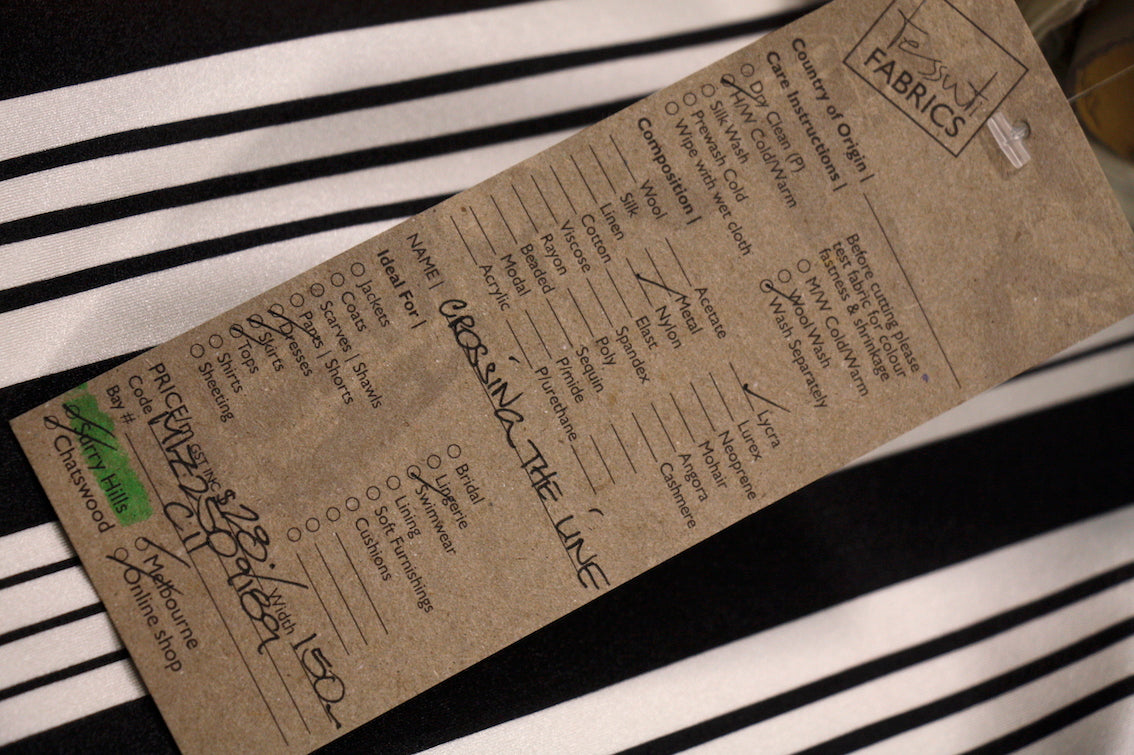 Tessuti
FABRICS
Country of Origin |
Care Instructions |
Dry Clean (P)
H/W Cold/Warm
Silk Wash
Prewash Cold
Wipe with wet cloth
Before cutting please
test fabric for colour
fastness & shrinkage
M/W Cold/Warm
Wool Wash
Wash Separately
Composition |
Wool
Silk
Linen
Cotton
Viscose
Rayon
Beaded
Modal
Acrylic
Acetate
Metal
Nylon
Elast
Spandex
Poly
Sequin
P/mide
P/urethane
Lycra
Lurex
Neoprene
Mohair
Angora
Cashmere
NAME | CROSSING THE LINE
Ideal For |
Jackets
Coats
Scarves | Shawls
Pants | Shorts
Dresses
Skirts
Tops
Shirts
Sheeting
Bridal
Lingerie
Swimwear
Lining
Soft Furnishings
Cushions
PRICE/m GST INC $28. Width 150
Code
Bay # C11
Surry Hills
Chatswood
Melbourne
Online shop